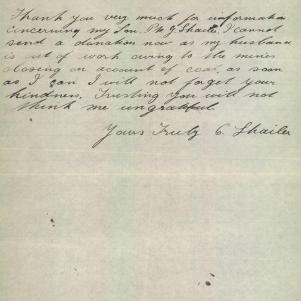 Thank you very much for information
concerning my Son, Pte J Shailer, I cannot
send a donation now as my husband
is out of work owing to the mines
closing on account of coal, as soon
as I can I will not forget your
kindness, Trusting you will not
think me ungrateful
Yours Truly C. Shailer